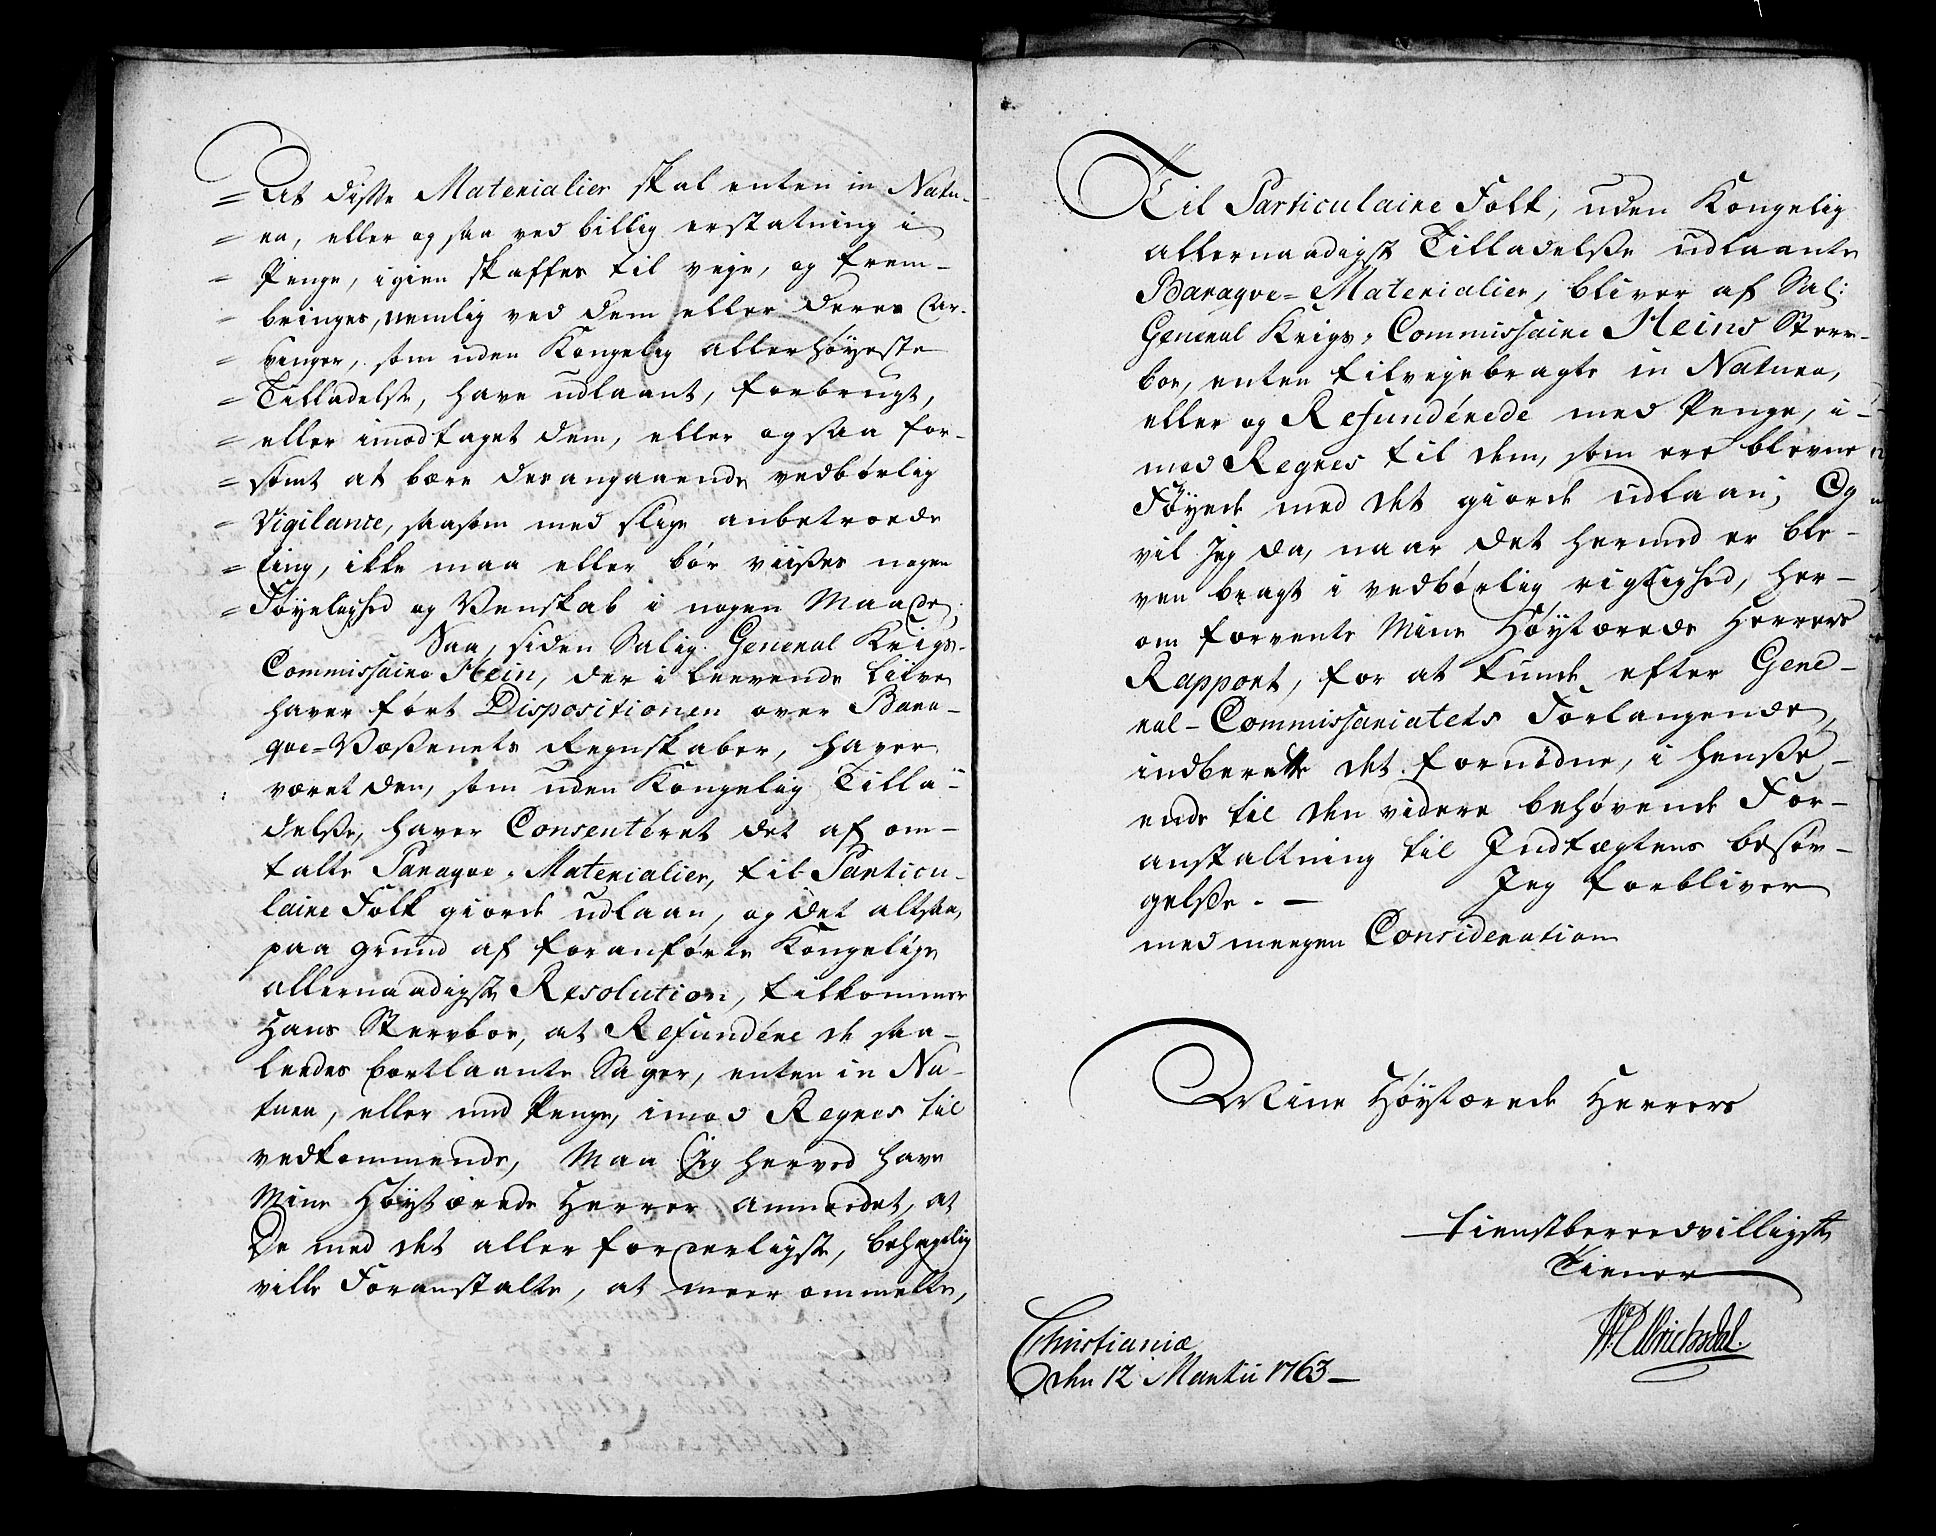 = At disse Materialier skal enten in Natu-
= ra, eller og saa ved billig erstatning i
= Penge, igien skaffes til veje, og frem-
- bringes, nemlig ved dem eller deres Ar-
= vinger, som uden Kongelig allerhøyeste
= Tilladelse, have udlaant, forbrugt,
= eller imodtaget dem, eller og saa for-
= sømt at bære derangaaende vedbørlig
= Vigilance, saasom med slige anbetroede
= ting, ikke maa eller bør viises nogen
= Føyelighed og Venskab i nogen Maade;
Saa, siden Salig General Krigs-
Commissaire Hein, der i leevende Liive
haver ført Dispositionen over Bara-
qve-Væsenets Regnskaber, haver
været den, som uden Kongelig Tilla-
delse, haver Consentéret det af om-
talte Baraqve-Materialier, til Particu-
laire Folk giorde udlaan, og det altsaa,
paa grund af foranførte Kongelige
allernaadigste Resolution, tilkommer
Hans Sterrboe, at Refundére de saa-
leedes bortlaante Sager, enten in Na-
tura, eller med Penge, imod Regres til
vedkommende, Maa Jeg herved have
Mine Høystærede Herrer anmodet, at
De med det allerforderligste, behagelig
ville Foranstalte, at meer ommelte,
Til Particulaire Folk, uden Kongelig
allernaadigst Tilladelse udlaante
Baraqve-Materialier, bliver af Sal:
General Krigs-Commissaire Heins Sterr-
boe, enten tilvejebragte in Natura,
eller og Refundérede med Penge, i-
mod Regres til dem, som ere blevne
Føyede med det giorde udlaan; Og
vil Jeg da, naar det hermed er ble-
ven bragt i vedbørlig rigtighed, her-
om forvente Mine Høystærede Herrers
Rapport, for at kunde efter Gene-
ral-Commissariatets Forlangende,
indberette det fornødne, i hense-
ende til den videre behøvende For-
anstaltning til Indtægtens besør-
gelse. - Jeg forbliver
med meegen Consideration
Mine Høystærede Herrers
tienstberredvilligste
Tiener
Christiania
den 12 Martii 1763